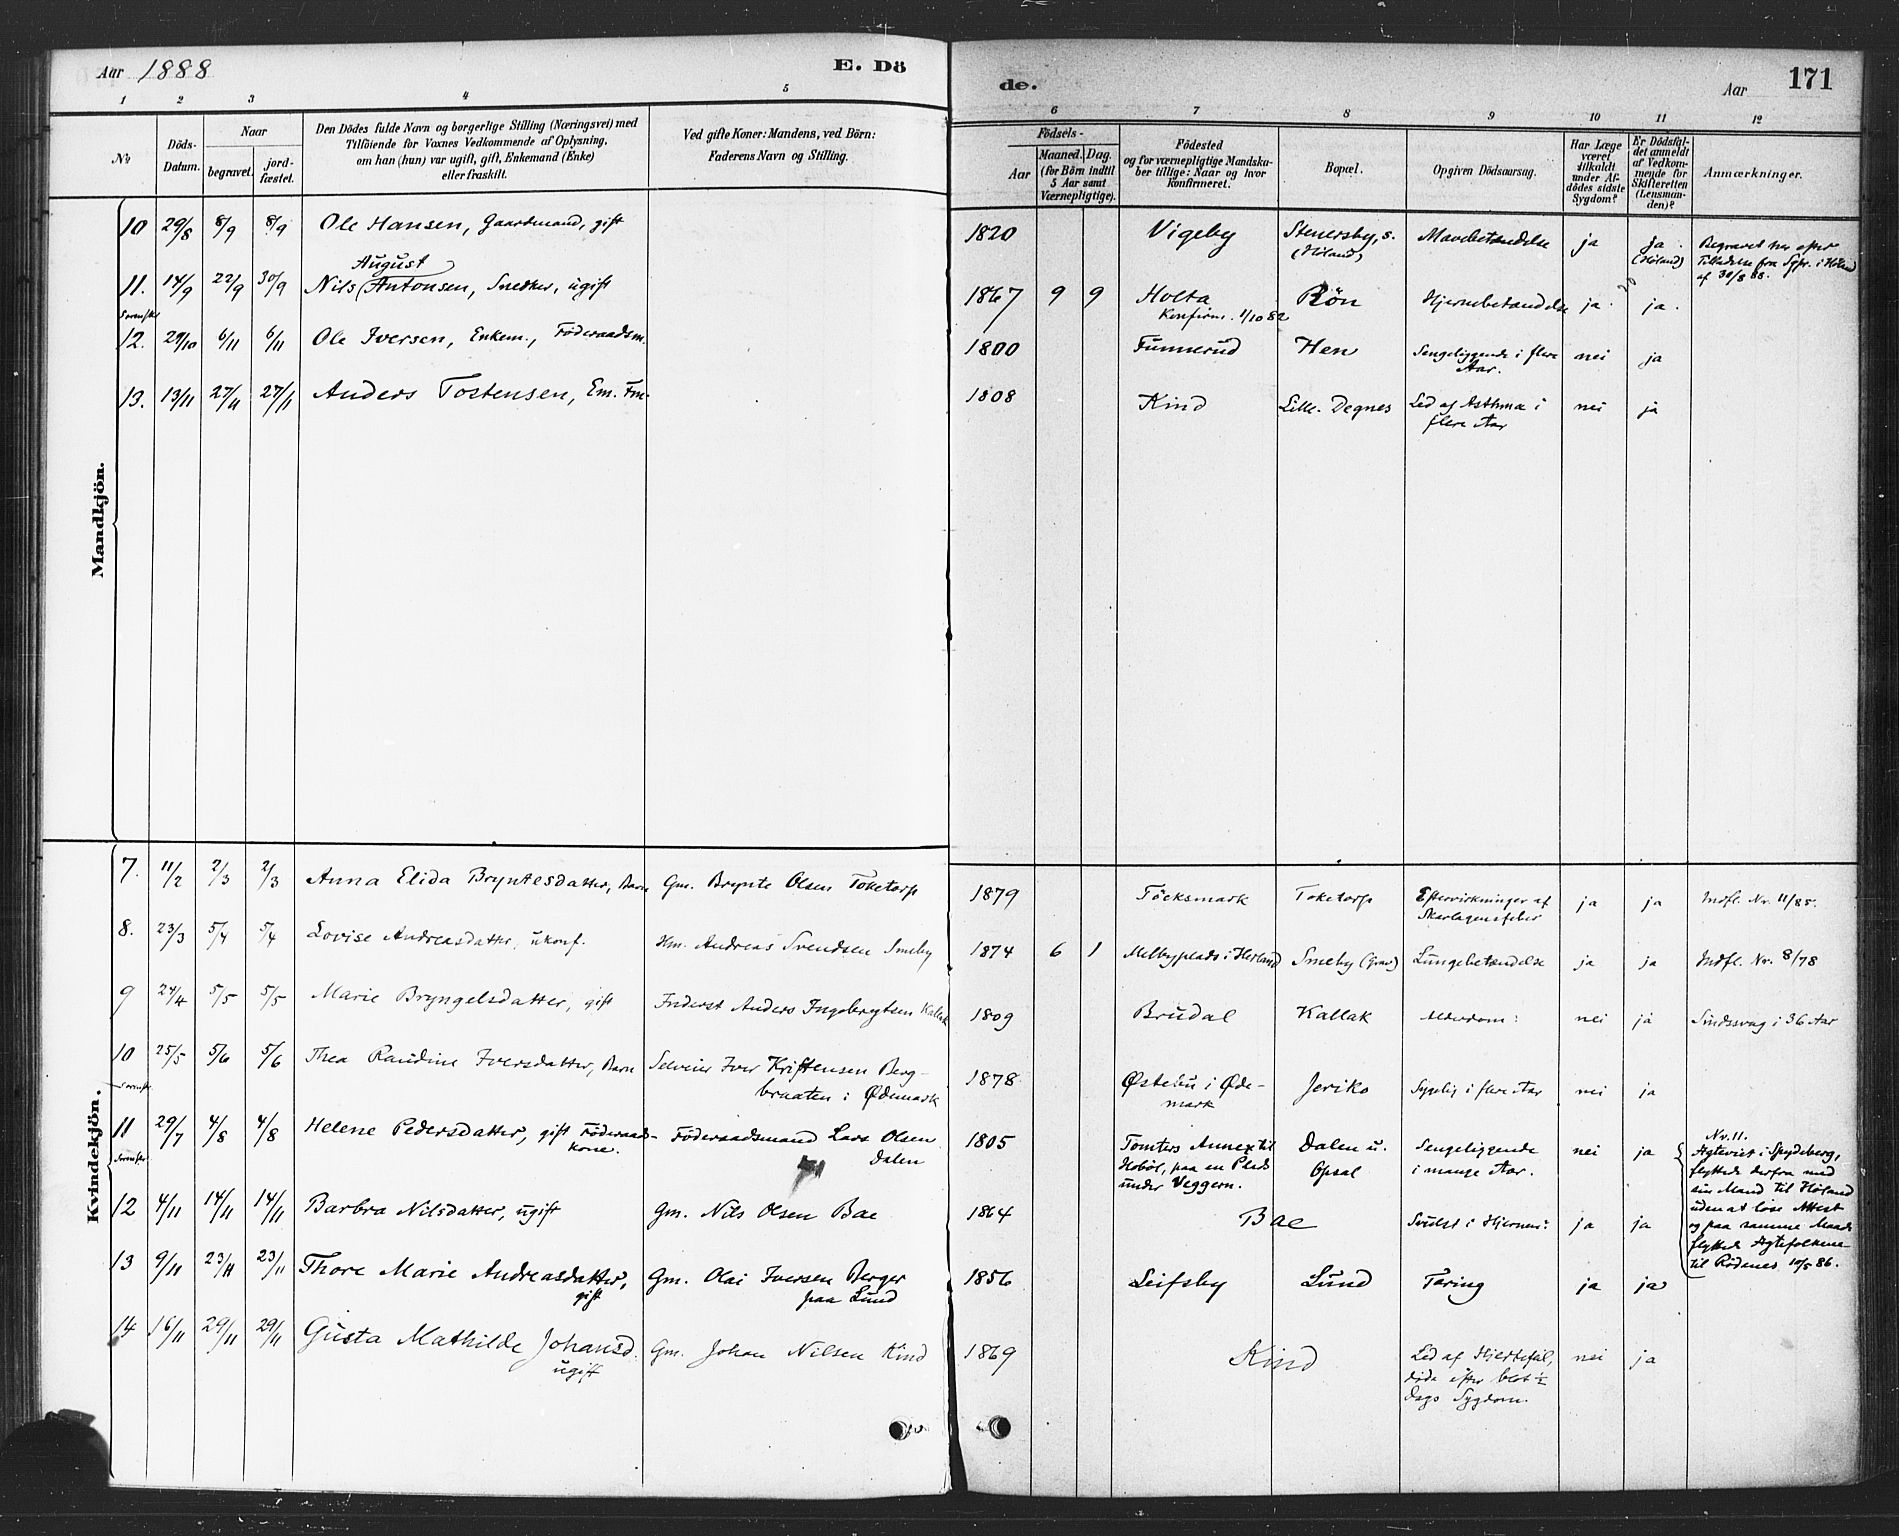 Aar 1888
E. Dö
de.
Aar
171
1 2 3 4 5
6 7 8 9 10 11 12
No
Döds-
Datum.
Naar
begravet.
jord-
fæstet.
Den Dödes fulde Navn og borgerlige Stilling (Næringsvei) med
Tilföiende for Voxnes Vedkommende af Oplysning,
om han (hun) var ugift, gift, Enkemand (Enke)
eller fraskilt.
Ved gifte Koner: Mandens, ved Börn:
Faderens Navn og Stilling.
Födsels-
Aar
Maaned. Dag.
(for Börn indtil
5 Aar samt
Værnepligtige).
Födested
og for værnepligtige Mandska-
ber tillige: Naar og hvor
konfirmeret.
Bopæl.
Opgiven Dödsaarsag.
Har Læge
været
tilkaldt
under Af-
dödes sidste
Sygdom?
Er Dödsfal-
det anmeldt
af Vedkom-
mende for
Skifteretten
(Lensman-
den)?
Anmærkninger.
Mandkjön.
10 29/8 8/9 8/9 Ole Hansen, Gaardmand, gift
1820 Vigeby Stenersby, s. Mavebetændelse ja ja. Begravet her efter
(Höland) (Höland) Tilladelse fra Spr. i Höland
af 30/8 88.
August
11. 14/9 22/9 30/9 Nils (Antonsen, Snedker, ugift
1867 9 9 Holta Rön Hjernebetændelse ja. ja.
Konfirm. 1/10 82
12. 29/10 6/11 6/11 Ole Iversen, Enkem., Föderaadsm.
1800 Funnerud Hen Sengeliggende i flere nei ja
Aar.
13. 13/11 27/11 27/11 Anders Tostensen, Em. Fm.
1808 Kind Lille-Degnes Led af Asthma i nei ja
flere Aar
Kvindekjön.
7. 11/2 2/3 2/3 Anna Elida Bryntesdatter, Barn Gm. Brynte Olsen Toketorp
1879 Töcksmark Toketorp Eftervirkninger af ja ja Indfl. Nr. 11/85.
Skarlagensfeber
8. 23/3 5/4 5/4 Lovise Andreasdatter, ukonf. Hm. Andreas Svendsen Smeby
1874 6 1 Melbyplads i Herland Smeby (Grav) Lungebetændelse ja ja Indfl. Nr. 8/78
9 24/4 5/5 5/5 Marie Bryngelsdatter, gift Inderst Anders Ingebregtsen Kallak
1809 Brudal Kallak Alderdom: nei ja Sindssvag i 36 Aar
10 25/5 5/6 5/6 Thea Raudine Iversdatter, Barn Selveier Iver Kristensen Berg-
braaten i Ødemark
1878 Østebu i Øde- Jeriko Sygelig i flere Aar nei ja
mark
11 29/7 4/8 4/8 Helene Pedersdatter, gift Föderaads- Föderaadsmand Lars Olsen
kone. Dalen
1805 Tomters Annex til Dalen u. Sengeliggende nei ja
Hoböl, paa en Plads Opsal i mange Aar.
under Veggern.
Nr. 11.
Ægteviet i Spydeberg,
flyttede derfra med
sin Mand til Höland
uden at löse Attest
og paa samme Maade
flyttede Ægtefolkene
til Rödenes 10/5 86.
12 4/11 14/11 14/11 Barbra Nilsdatter, ugift Gm. Nils Olsen Bae
1864 Bae Svulst i Hjernen: ja ja
13 9/11 23/11 23/11 Thore Marie Andreasdatter, Gm. Olai Iversen Berger
gift paa Lund
1856 Leifsby Lund Tæring ja ja
14 16/11 29/11 29/11 Gusta Mathilde Johansd. Gm. Johan Nilsen Kind
ugift
1869 Kind Led af Hjertefeil, nei ja
döde efter blot ½
Dags Sygdom.